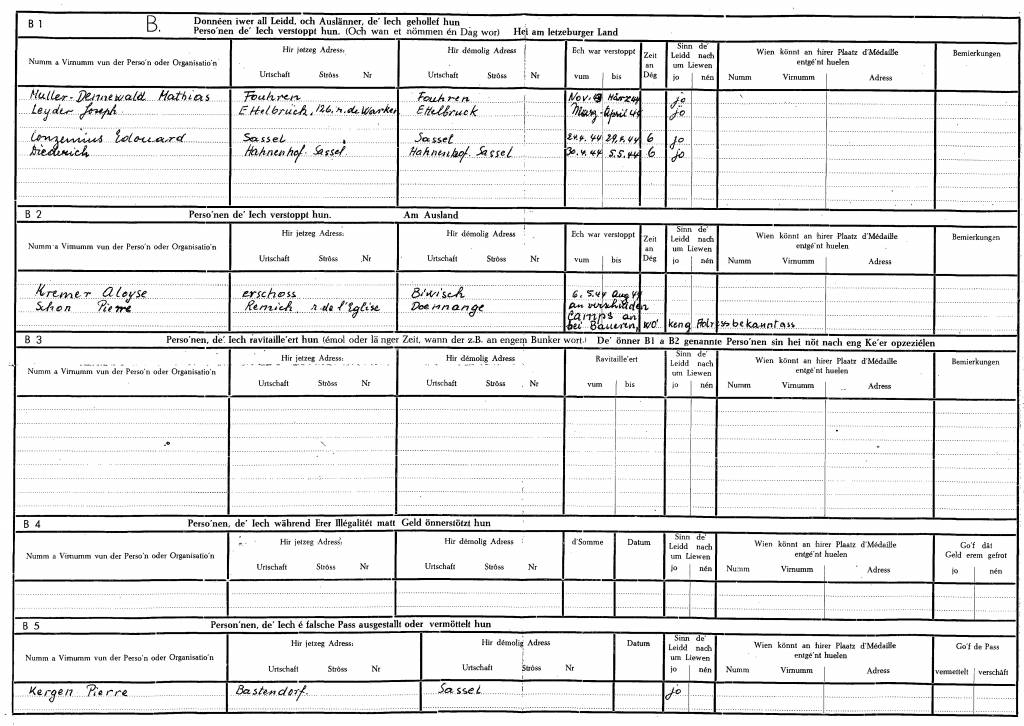 B 1 B. Donnéen iwer all Leidd, och Auslänner, de' Iech gehollef hun
Perso'nen de' Iech verstoppt hun. (Och wan et nömmen én Dag wor) Hei am letzeburger Land
Numm a Virnumm vun der Perso'n oder Organisatio'n Hir jetzeg Adress: Hir démolig Adress Ech war verstoppt Zeit an Dég Sinn de' Leidd nach um Liewen Wien könnt an hirer Plaatz d'Médaille entgé'nt huelen Bemierkungen
Urtschaft Ströss Nr Urtschaft Ströss Nr vum bis jo nén Numm Virnumm Adress
Muller-Dennewald Mathias Fouhren Fouhren Nov. 43 März 44 jo
Leyder Joseph Ettelbruck, 126, r. de Warken Ettelbruck März-April 44 jo
Conzemius Edouard Sassel Sassel 24.4.44 29.4.44 6 jo
Diederich Hahnenhof. Sassel Hahnenhof. Sassel 30.4.44 5.5.44 6 jo
B 2 Perso'nen de' Iech verstoppt hun. Am Ausland
Numm a Virnumm vun der Perso'n oder Organisatio'n Hir jetzeg Adress: Hir démolig Adress Ech war verstoppt Zeit an Dég Sinn de' Leidd nach um Liewen Wien könnt an hirer Plaatz d'Médaille entgé'nt huelen Bemierkungen
Urtschaft Ströss Nr Urtschaft Ströss Nr vum bis jo nén Numm Virnumm Adress
Kremer Aloyse erschoss Biwisch 6.5.44 Aug 44
Schon Pierre Remich, r de l'Eglise Doennange an verschidden
Camps an
bei Baueren, wo' keng Adress bekannt ass
B 3 Perso'nen, de' Iech ravitaille'ert hun (émol oder länger Zeit, wann der z.B. an engem Bunker wort.) De' önner B1 a B2 genannte Perso'nen sin hei nöt nach eng Ke'er opzezielen
Numm a Virnumm vun der Perso'n oder Organisatio'n Hir jetzeg Adress: Hir démolig Adress Ravitaille'ert Sinn de' Leidd nach um Liewen Wien könnt an hirer Plaatz d'Médaille entgé'nt huelen Bemierkungen
Urtschaft Ströss Nr Urtschaft Ströss Nr vum bis jo nén Numm Virnumm Adress
B 4 Perso'nen, de' Iech während Erer Illégalitét matt Geld önnerstötzt hun
Numm a Virnumm vun der Perso'n oder Organisatio'n Hir jetzeg Adress: Hir démolig Adress d'Somme Datum Sinn de' Leidd nach um Liewen Wien könnt an hirer Plaatz d'Médaille entgé'nt huelen Go'f dât Geld erem gefrot
Urtschaft Ströss Nr Urtschaft Ströss Nr jo nén Numm Virnumm Adress jo nén
B 5 Person'nen, de' Iech é falsche Pass ausgestallt oder vermöttelt hun
Numm a Virnumm vun der Perso'n oder Organisatio'n Hir jetzeg Adress: Hir démolig Adress Datum Sinn de' Leidd nach um Liewen Wien könnt an hirer Plaatz d'Médaille entgé'nt huelen Go'f de Pass
Urtschaft Ströss Nr Urtschaft Ströss Nr jo nén Numm Virnumm Adress vermettelt verschâft
Kergen Pierre Bastendorf. Sassel jo